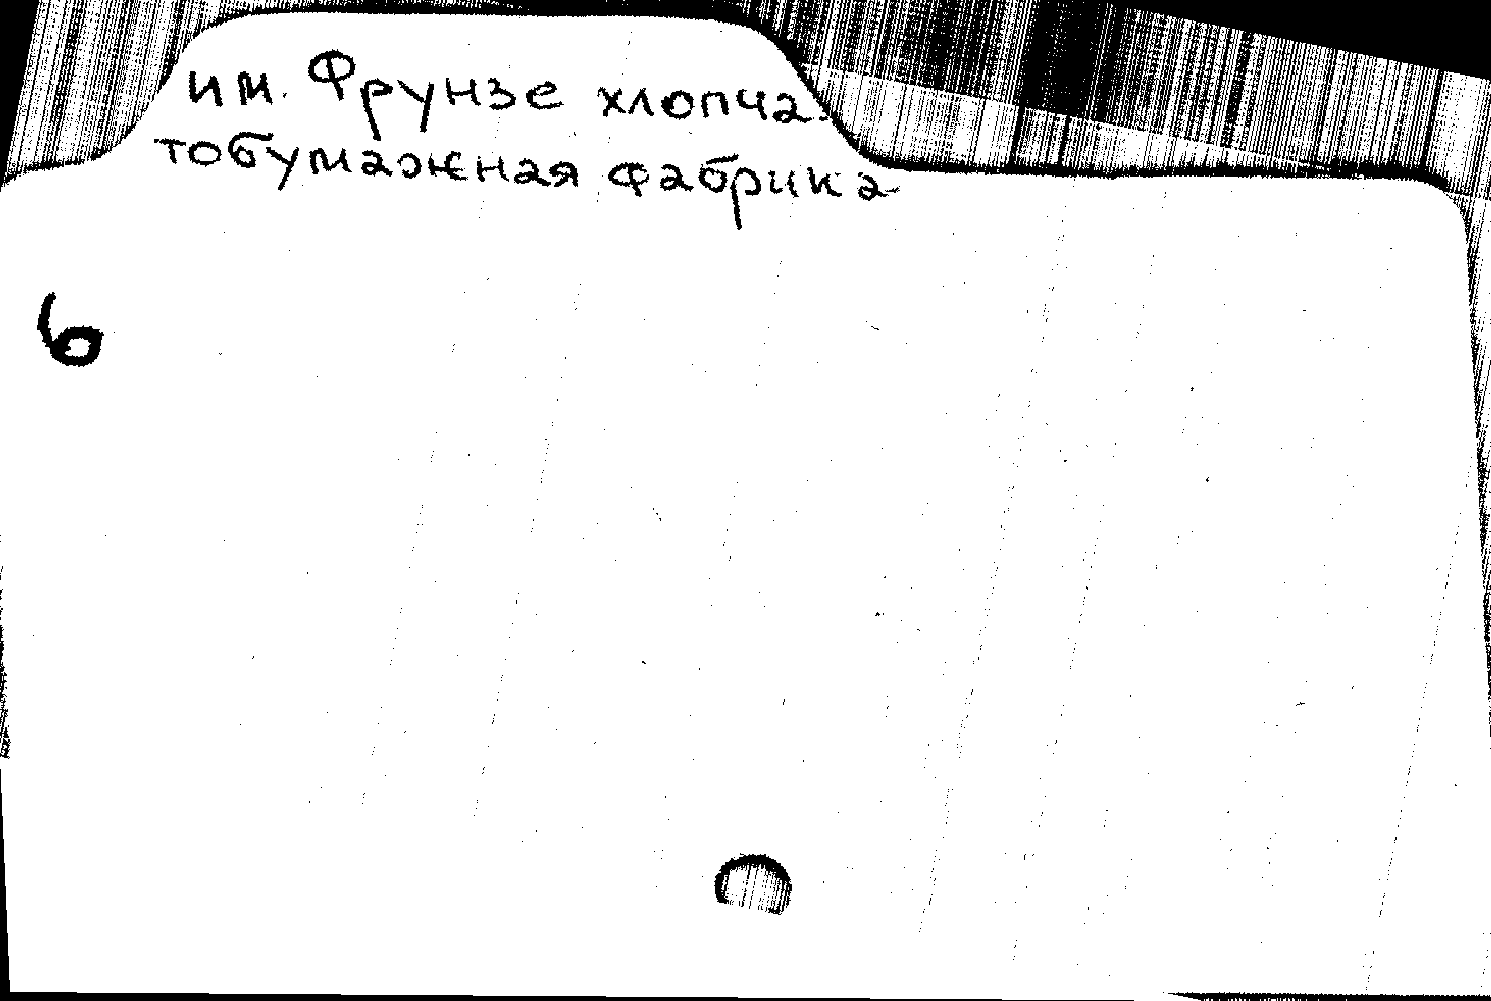 им. Фрунзе хлопча-
тобумажная фабрика
6